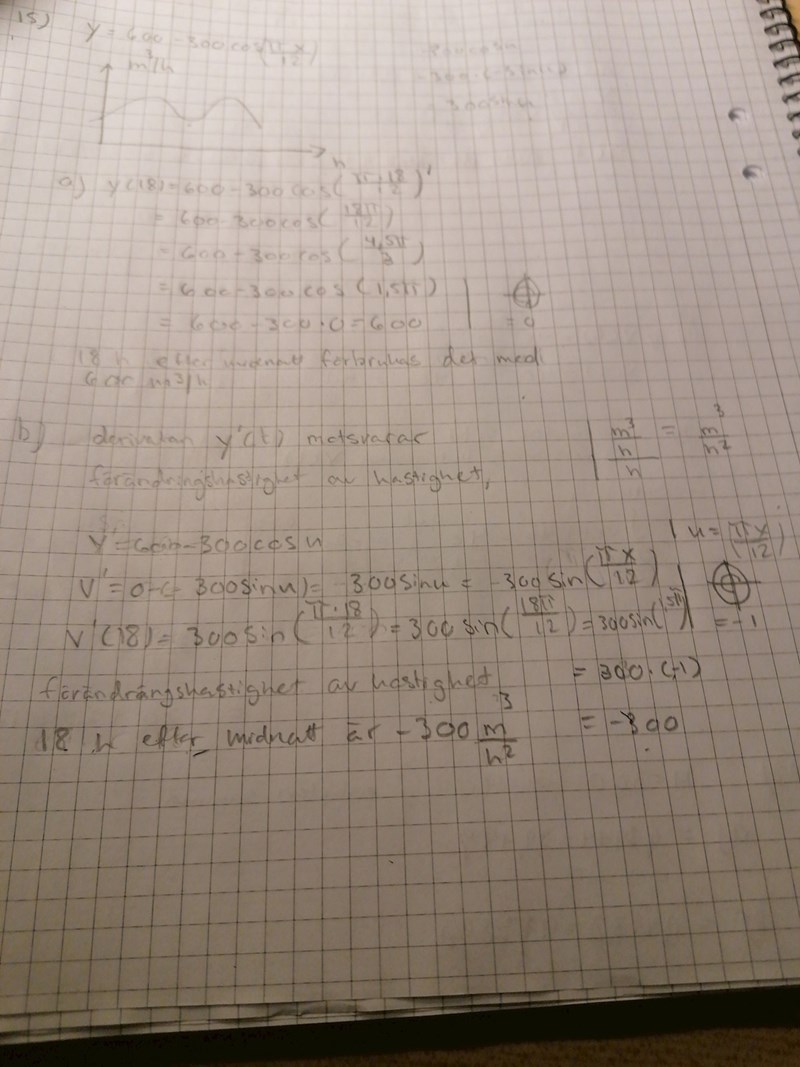 15)
y = 600 - 300cos(πx/12)
m³/h
h
a) y(18) = 600 - 300 cos(π·18/12)
= 600 - 300cos(18π/12)
= 600 - 300cos(4,5π/3)
= 600 - 300 cos(1,5π)
= 600 - 300 · 0 = 600 | = 0
18 h efter midnatt förbrukas det med
600 m³/h
b) derivatan y'(t) motsvarar | m³/h/h = m³/h²
förändringshastighet av hastighet,
y = 600 - 300cos u | u = (πx/12)
V' = 0 - (- 300sinu) = 300sinu = 300 sin(πx/12)
V'(18) = 300 sin(π·18/12) = 300 sin(18π/12) = 300sin(1,5π) | = -1
förändrångshastighet av hastighet = 300·(-1)
18 h efter midnatt är -300 m³/h² = -300